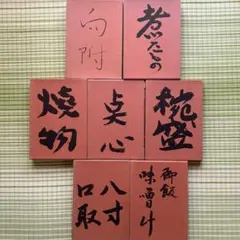 向附
煮たもの
燒物
点心
椀盛
八寸
口取
御飯
味噌汁